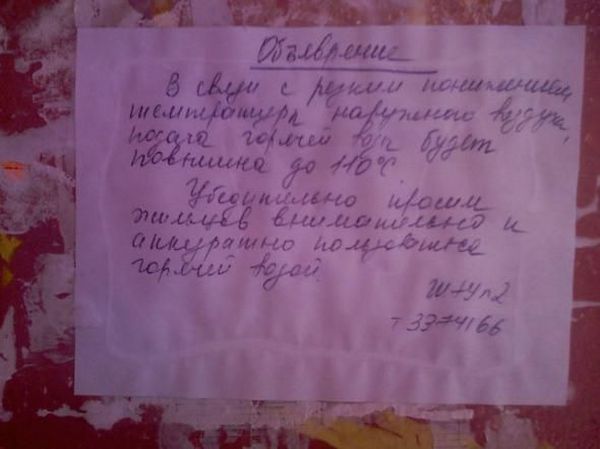 Объявление
В связи с резким понижением
температуры наружного воздуха,
подача горячей воды будет
повышина до 110°С
Убедительно просим
жильцов внимательно и
аккуратно пользоваться
горячей водой
т 3374166